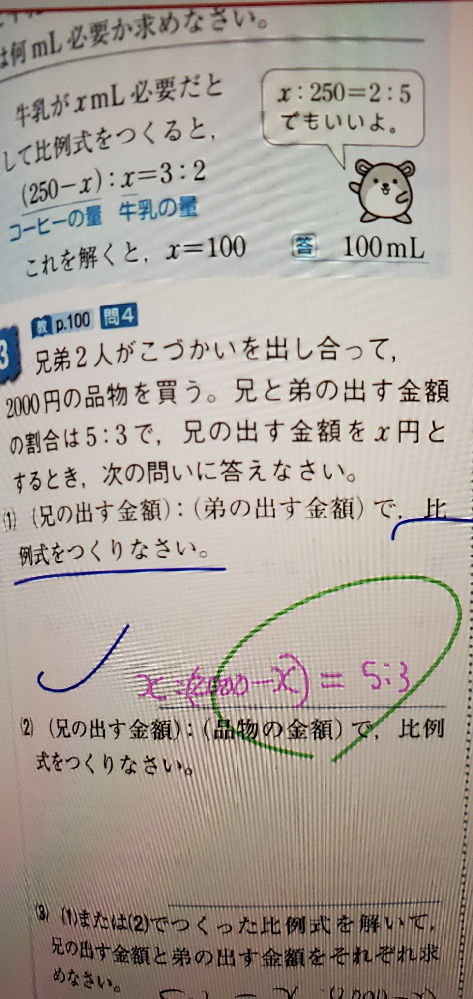 は何mL必要か求めなさい。
牛乳がxmL必要だと
して比例式をつくると，
(250−x)：x=3：2
コーヒーの量 牛乳の量
これを解くと，x=100
x：250=2：5
でもいいよ。
答 100mL
教 p.100 問4
3 兄弟2人がこづかいを出し合って，
2000円の品物を買う。兄と弟の出す金額
の割合は5：3で，兄の出す金額をx円と
するとき，次の問いに答えなさい。
(1) (兄の出す金額)：(弟の出す金額)で，比
例式をつくりなさい。
x:(2000−x) = 5:3
(2) (兄の出す金額)：(品物の金額)で，比例
式をつくりなさい。
(3) (1)または(2)でつくった比例式を解いて，
兄の出す金額と弟の出す金額をそれぞれ求
めなさい。